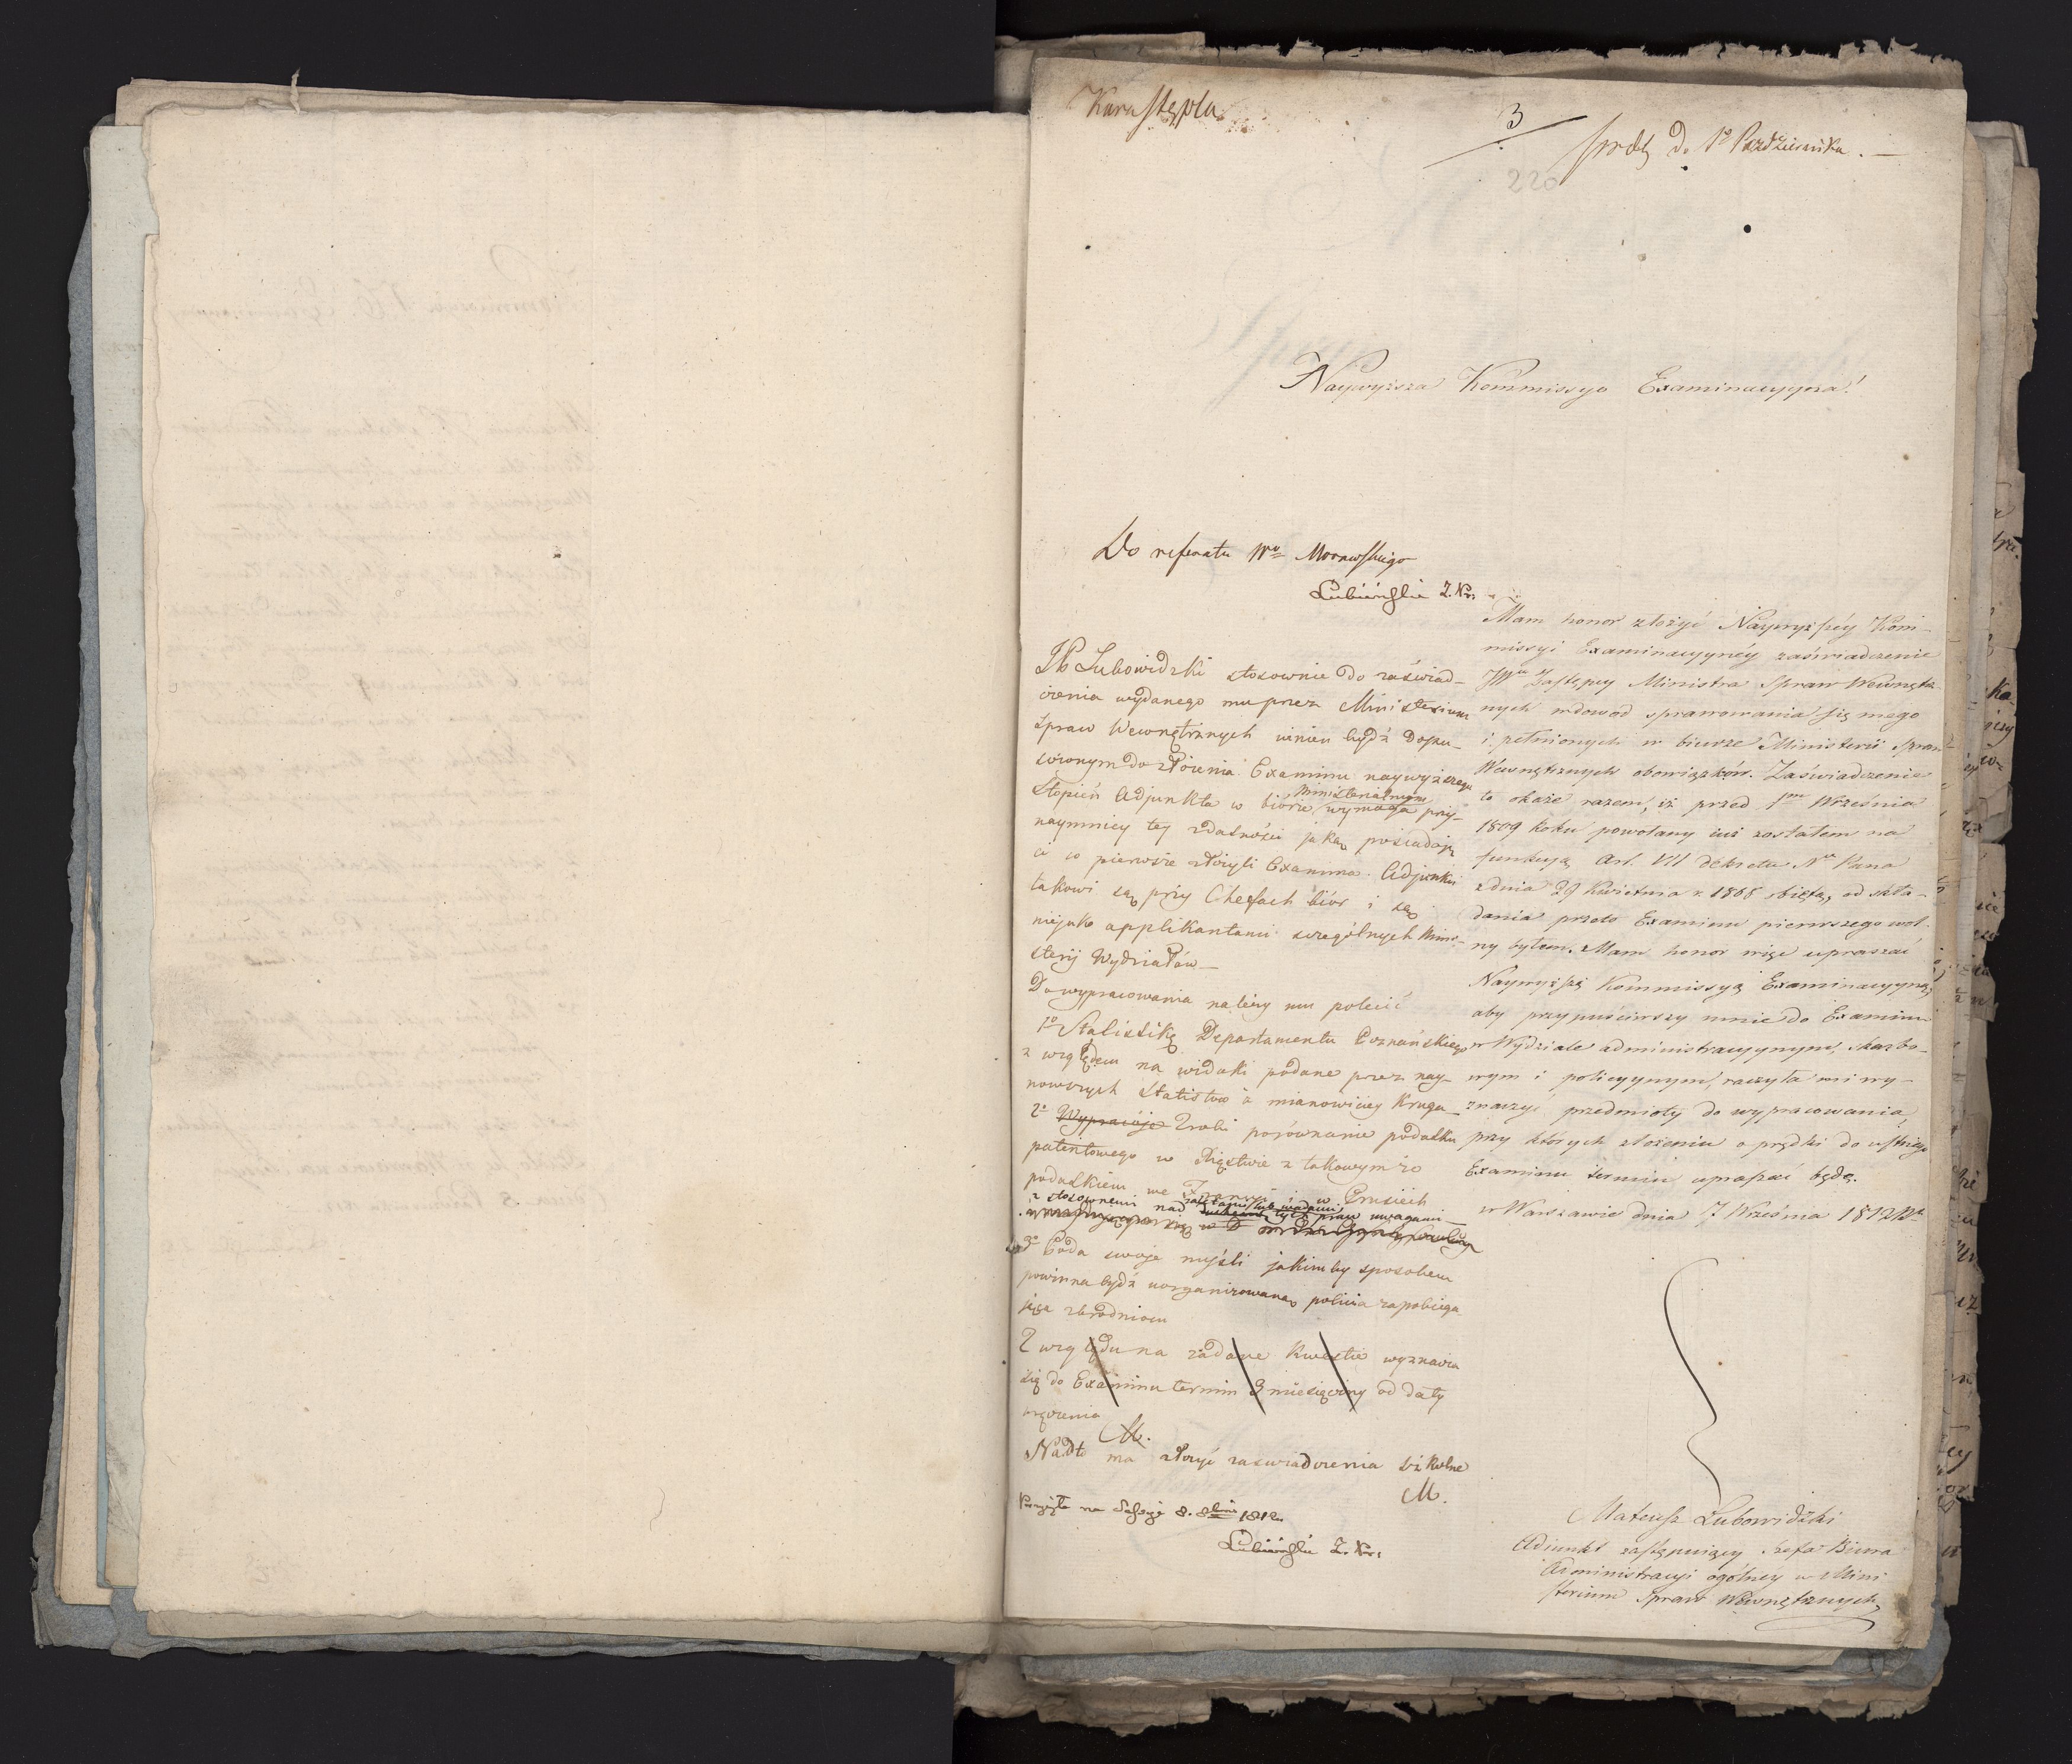 Kara stępla
3
220
prod. D. 1º Październiku. —
Naywyższa Kommissyo Examinacyyna!
Do referatu Wº Morawskiego
Lubieński
JP Lubowidzki stosownie do zaświad-
czenia wydanego mu przez Ministerium
Spraw Wewnętrznych winien bydź dopu-
szczonym do złożenia Examinu naywyższego
Stopień Adjunkta w biórze Ministerialnym wymaga przy-
naymniey tey zdatności jaką posiadają
ci co pierwsze złożyli Examina. Adjunkci
takowi są przy Chefach biór i są
niejako applikantami szczególnych Mini-
sterij Wydziałów —
Do wypracowania należy mu polecić
1º Statistikę Departamentu Poznańskiego
z względem na widoki podane przez nay-
nowszych Statistów a mianowiciey Kruga —
2º Wypracuje Zrobi porównanie podatku
patentowego w Xięstwie z takowym że
podatkiem we Francyi i w Prusiech
z stosownemi nad zaletami lub wadami tych praw uwagami —
3º Poda swoje myśli jakimby sposobem
powinna bydź uorganizowana policia zapobiega
jąca zbrodniom
Z względu na zadane kwestie wyznacza
się do Examinu termin 3 miesięczny od daty
ręczenia
M.
Nadto ma złożyć zaświadczenia szkolne
M.
Przyięto na Sessyi 8. 8bris 1812.
Lubieński
Mam honor złożyć Naywyższey Kom-
missyi Examinacyyney zaświadczenie
JWº Zastępcy Ministra Spraw Wewnętrz-
nych w dowód sprawowania się mego
i pełnionych w biurze Ministerii Spraw
Wewnętrznych obowiązków. Zaświadczenie
to okaże razem, iż przed 1m Września
1809 roku powołany już zostałem na
funkcyą Art. VII dekretu Nº Pana
z dnia 29 Kwietnia r. 1808 objętą, od skła-
dania przeto Examinu pierwszego wol-
ny byłem. Mam honor więc upraszać
Naywyższą Kommissyą Examinacyyną,
aby przypuściwszy mnie do Examinu
w Wydziale administracyynym, skarbo-
wym i policyynym, raczyła mi wy-
znaczyć przedmioty do wypracowania,
przy których złożeniu o prędki do ustnego
Examinu termin upraszać będę.
w Warszawie dnia 7 Września 1812 Rº
Mateusz Lubowidzki
Adiunkt zastępuiący Szefa Biura
Administracyi ogólney w Mini
sterium Spraw Wewnętrznych